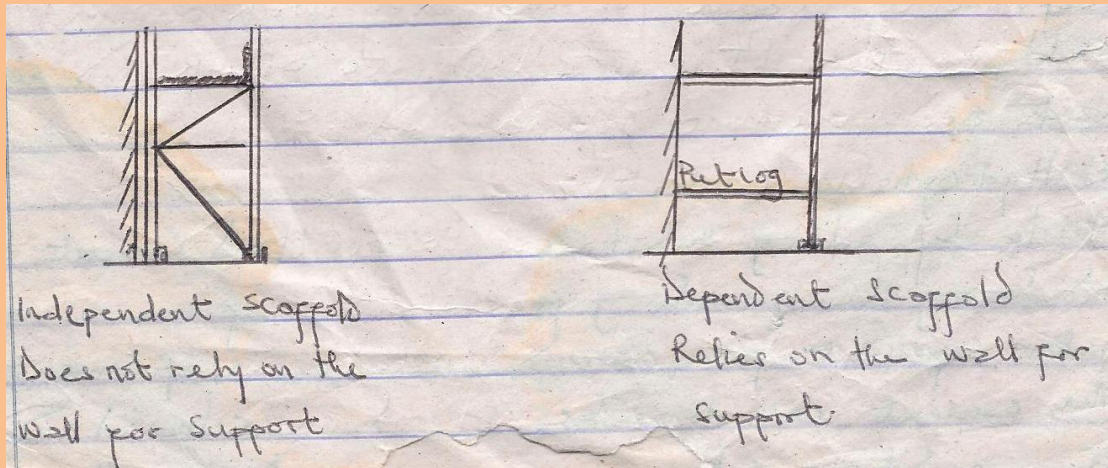 Putlog
Independent Scaffold
Does not rely on the
Wall for Support
Dependent Scaffold
Relies on the wall for
Support.